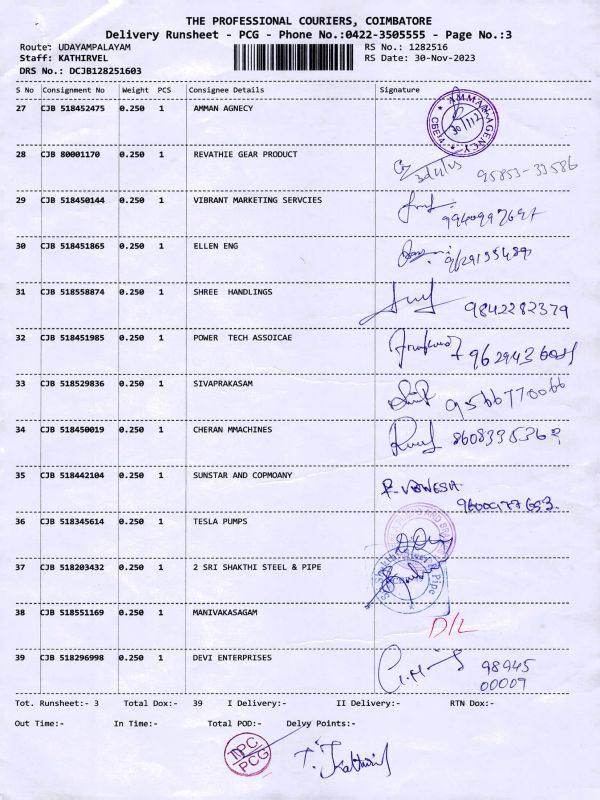 THE PROFESSIONAL COURIERS, COIMBATORE
Delivery Runsheet - PCG - Phone No.:0422-3505555 - Page No.:3
Route: UDAYAMPALAYAM RS No.: 1282516
Staff: KATHIRVEL RS Date: 30-Nov-2023
DRS No.: DCJB128251603
S No Consignment No Weight PCS Consignee Details Signature
27 CJB 518452475 0.250 1 AMMAN AGNECY AMMAN AGENCY CBE14
28 CJB 80001170 0.250 1 REVATHIE GEAR PRODUCT 95853-33586
29 CJB 518450144 0.250 1 VIBRANT MARKETING SERVCIES
30 CJB 518451865 0.250 1 ELLEN ENG
31 CJB 518558874 0.250 1 SHREE HANDLINGS 9842282379
32 CJB 518451985 0.250 1 POWER TECH ASSOICAE
33 CJB 518529836 0.250 1 SIVAPRAKASAM 9566770066
34 CJB 518450019 0.250 1 CHERAN MMACHINES
35 CJB 518442104 0.250 1 SUNSTAR AND COPMOANY
36 CJB 518345614 0.250 1 TESLA PUMPS
37 CJB 518203432 0.250 1 2 SRI SHAKTHI STEEL & PIPE
38 CJB 518551169 0.250 1 MANIVAKASAGAM D/L
39 CJB 518296998 0.250 1 DEVI ENTERPRISES 98945
00009
Tot. Runsheet:- 3 Total Dox:- 39 I Delivery:- II Delivery:- RTN Dox:-
Out Time:- In Time:- Total POD:- Delvy Points:-
TPC
PCG